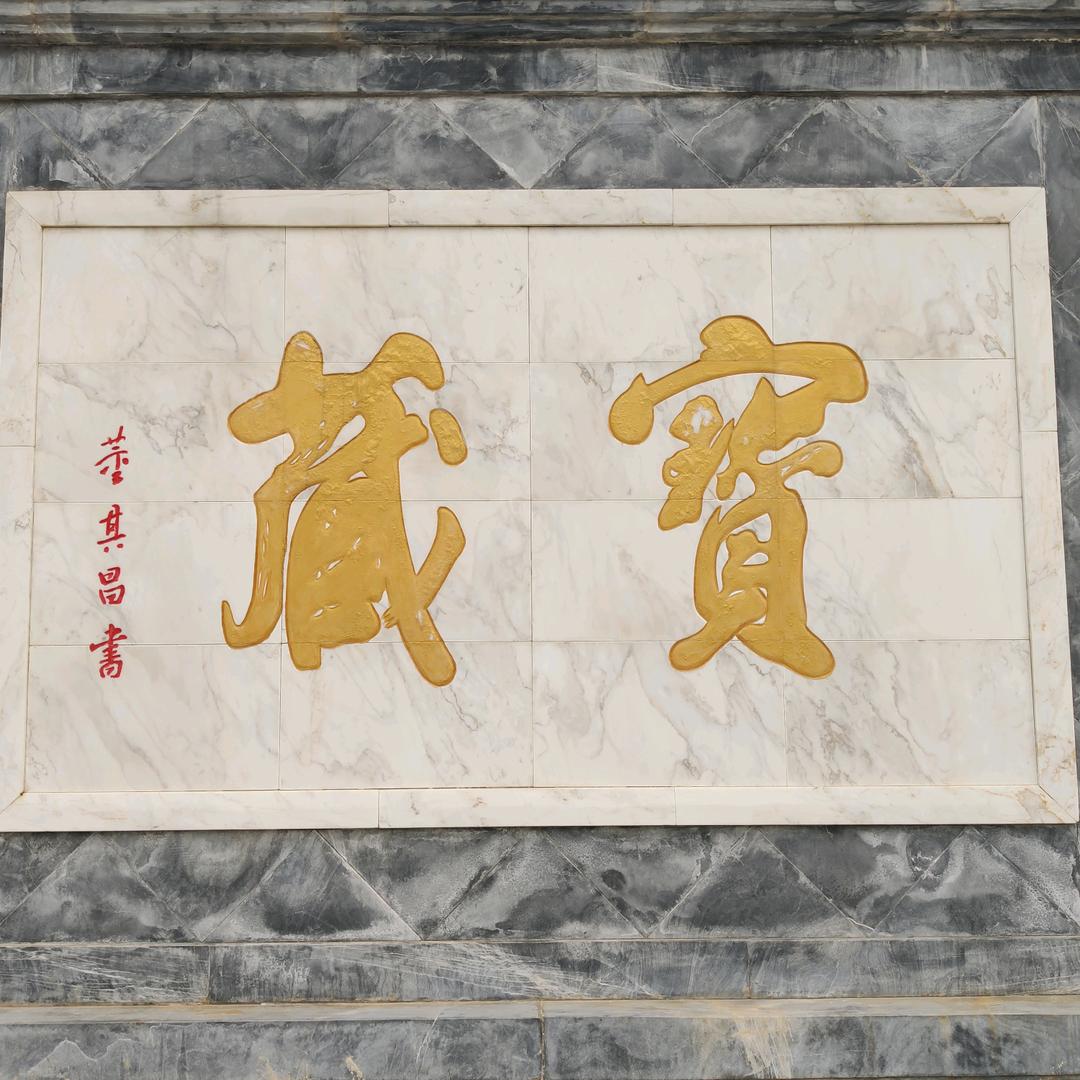 寶藏
董其昌書